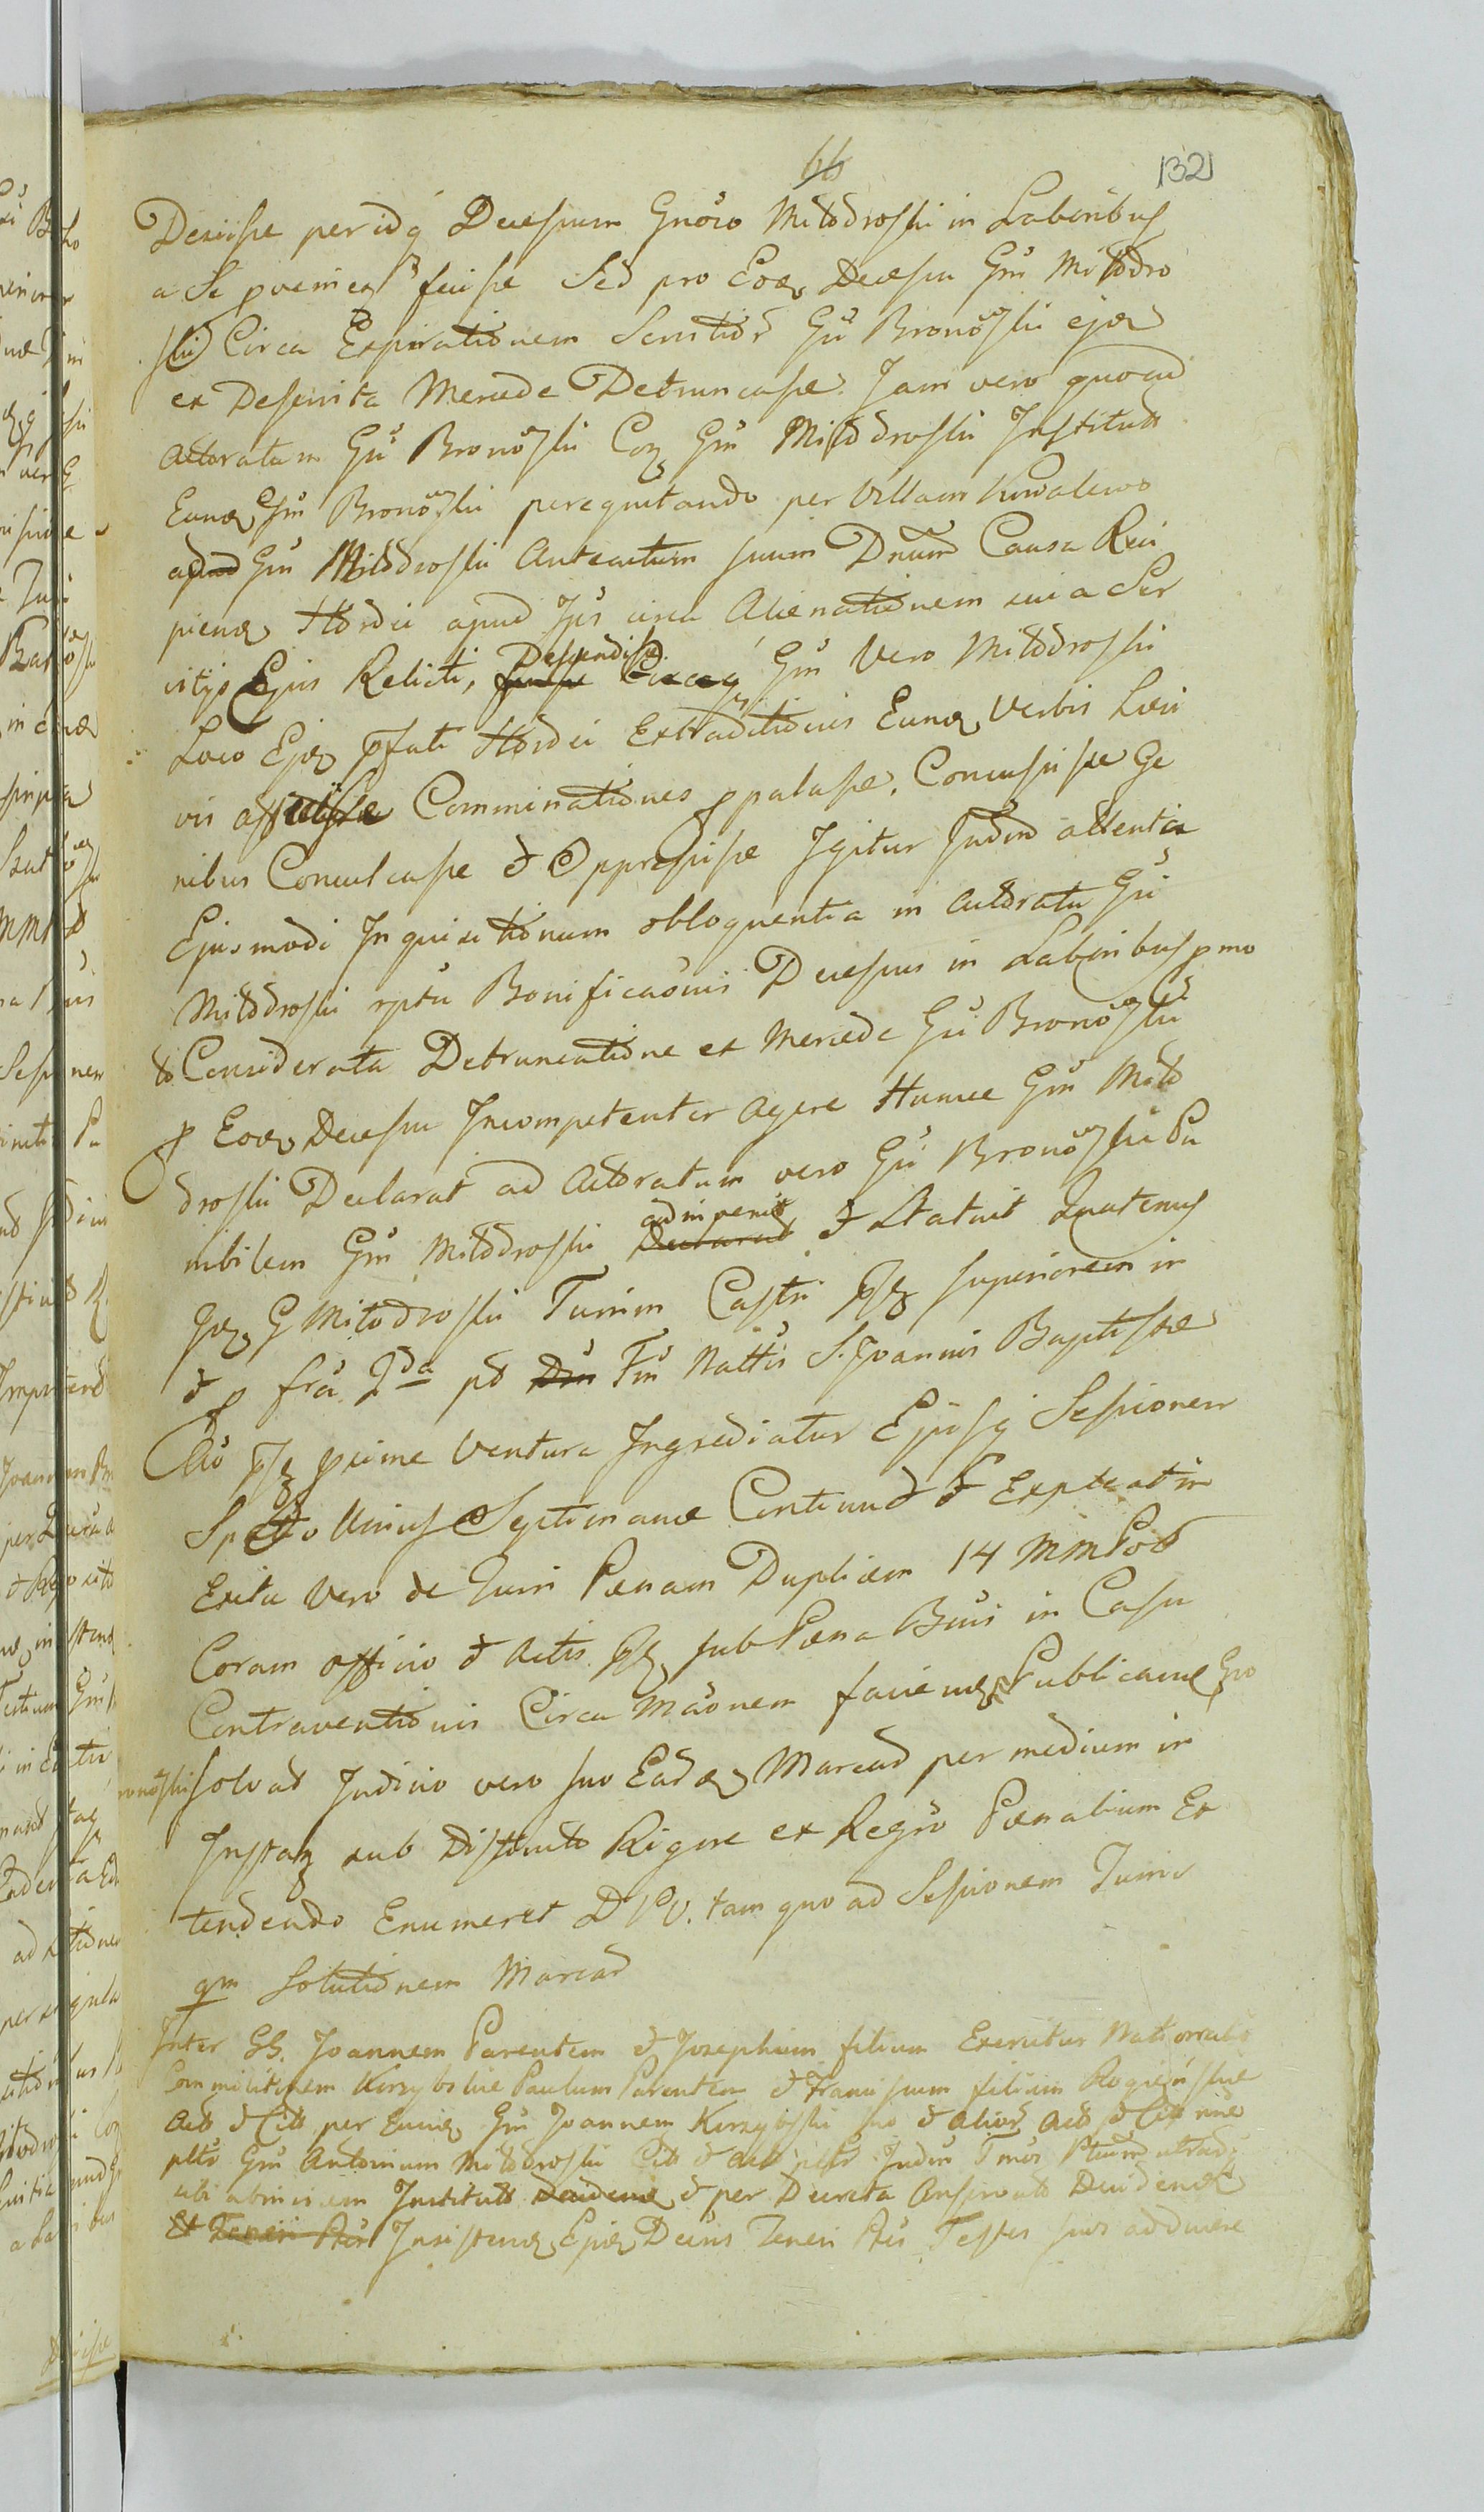 66
132
Deciisse per idq Decessum Gnoso Mitodroski in Laboribus
a Se proveniens fecisse Sed pro Eoq Decessu Gm Mitodro
ski Circa Expirationem Servitior Gu Bronowski ejus
ex Deservita Mercede Detruncasse. Jam vero quoad
Actoratum Gu Bronowski Coq Gm Mitodroski Institutt
Eunq Gm Bronowski perequitando per Villam Kowalewo
apud Gm Mitodroski Anteactum suum Dnum Causa Reci
piend Hordei apud Ips circa Alienationem sui a Ser
vitys Ejus Relicti, Descendisse Gm Vero Mitodroski
Loco Ejq pfati Hordei Extraditionis Eunq Verbis Laesi
vis affecisse Comminationes ppalasse, Concussisse Ge
nibus Conculcasse & Oppressisse Igitur Judm attenta
Ejusmodi Inquisitionum obloquentia in Actoratu Gu
Mitodroski rptu Bonificaonis Decessus in Laboribus pmo
to Considerata Detruncatione ex Mercede Gu Bronowski
p Eoq Decessu Incompetenter Agere Hunce Gm Mito
droski Declarat ad Actoratum vero Gu Bronowski Pu
nibilem Gm Mitodroski adinvenit & Statuit Quatenus
Idq G Mitodroski Turrim Castri superiorem in
& p fra 2da pt Fm Nattis S. Joannis Baptistae
Ao proxime Ventura Ingrediatur Ejusq Sessionem
Spatio Unius Septimanae Continuet & Expleat in
Exitu Vero de Turri Paenam Duplicem 14 MmPol
Coram officio & Actis sub Paena Bnis in Casu
Contraventionis Circa Maonem faciend Publicand Gro
nowski solvat Judicio vero suo Eadq Marcas per medium in
Instaq sub Distincto Rigore ex Regro Paenalium Ex
tendendo Enumeret D P V. tam quo ad Sessionem Turris
qm Solutionem Marcar
Inter GG. Joannem Parentem & Josephum filium Exercitus Nattoralis
Commilitonem Kirzybskie Paulum Parentem & Franciscum filium Rogienskie
Act & Citt per Eunq Gm Joannem Kirzybski suo & alior Act & Citt nine
pltr Gm Antonium Mitodroski Citt & act pltr Judm Tmos Ptium utrad
ubi abinvicem Institutt & per Decreta Anservato Decidend
Insistend Ejq Decis Teneri Ads Testes suos adducere